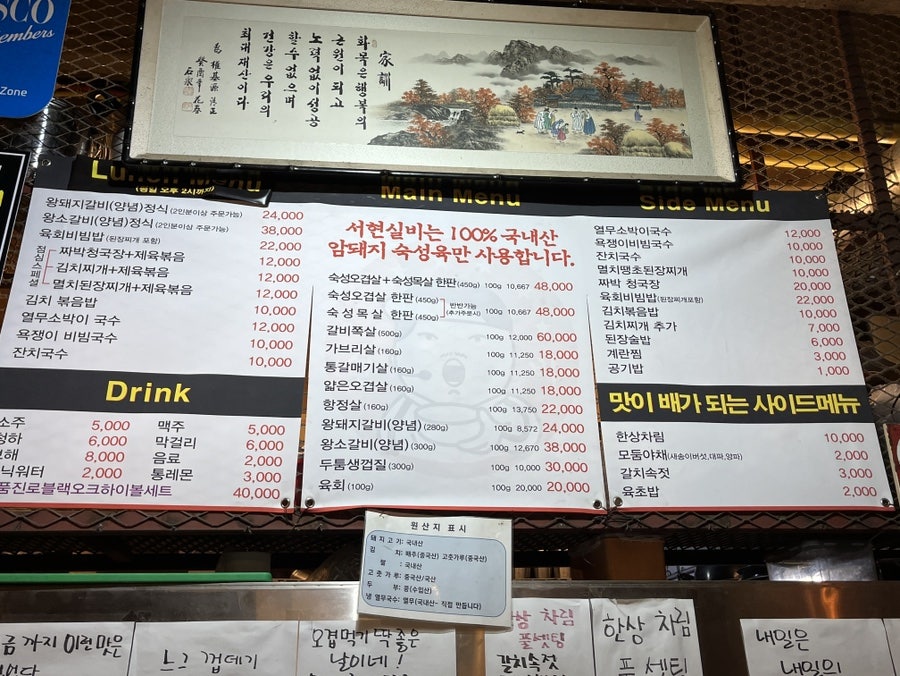 SCO
embers
Zone
家訓
화목은 행복의
근원이 되고
노력없이 성공
할수 없으며
건강은 우리의
최대 재산이다
Lunch Menu
(평일 오후 2시까지)
왕돼지갈비(양념)정식 (2인분이상 주문가능) 24,000
왕소갈비(양념)정식 (2인분이상 주문가능) 38,000
육회비빔밥 (된장찌개 포함) 22,000
점심스페셜
짜박청국장+제육볶음 12,000
김치찌개+제육볶음 12,000
멸치된장찌개+제육볶음 12,000
김치 볶음밥 10,000
열무소박이 국수 12,000
욕쟁이 비빔국수 10,000
잔치국수 10,000
Drink
소주 5,000
청하 6,000
8,000
닉워터 2,000
품진로블랙오크하이볼세트 40,000
맥주 5,000
막걸리 6,000
음료 2,000
통레몬 3,000
Main Menu
서현실비는 100% 국내산
암돼지 숙성육만 사용합니다.
숙성오겹살+숙성목살 한판 (450g) 100g 10,667 48,000
숙성오겹살 한판 (450g)
숙성목살 한판 (450g)
반반가능
(추가주문시)
100g 10,667 48,000
갈비쪽살 (500g) 100g 12,000 60,000
가브리살 (160g) 100g 11,250 18,000
통갈매기살 (160g) 100g 11,250 18,000
얇은오겹살 (160g) 100g 11,250 18,000
항정살 (160g) 100g 13,750 22,000
왕돼지갈비(양념) (280g) 100g 8,572 24,000
왕소갈비(양념) (300g) 100g 12,670 38,000
두툼생껍질 (300g) 100g 10,000 30,000
육회 (100g) 100g 20,000 20,000
Side Menu
열무소박이국수 12,000
욕쟁이비빔국수 10,000
잔치국수 10,000
멸치땡초된장찌개 10,000
짜박 청국장 20,000
육회비빔밥(된장찌개포함) 22,000
김치볶음밥 10,000
김치찌개 추가 7,000
된장술밥 6,000
계란찜 3,000
공기밥 1,000
맛이 배가 되는 사이드메뉴
한상차림 10,000
모둠야채(새송이버섯,대파,양파) 2,000
갈치속젓 3,000
육초밥 2,000
원산지 표시
돼지고기: 국내산
김 치: 배추(중국산) 고춧가루(중국산)
쌀 : 국내산
고춧가루: 중국산/국산
두 부: 콩(수입산)
냉 열무국수: 열무(국내산- 직접 만듭니다)
금 까지 이런맛은
없다
느그 껍데기
오겹먹기 딱좋은
날이네!
한상 차림
풀셋팅
갈치속젓
한상 차림
풀 세팅
내일은
내일의